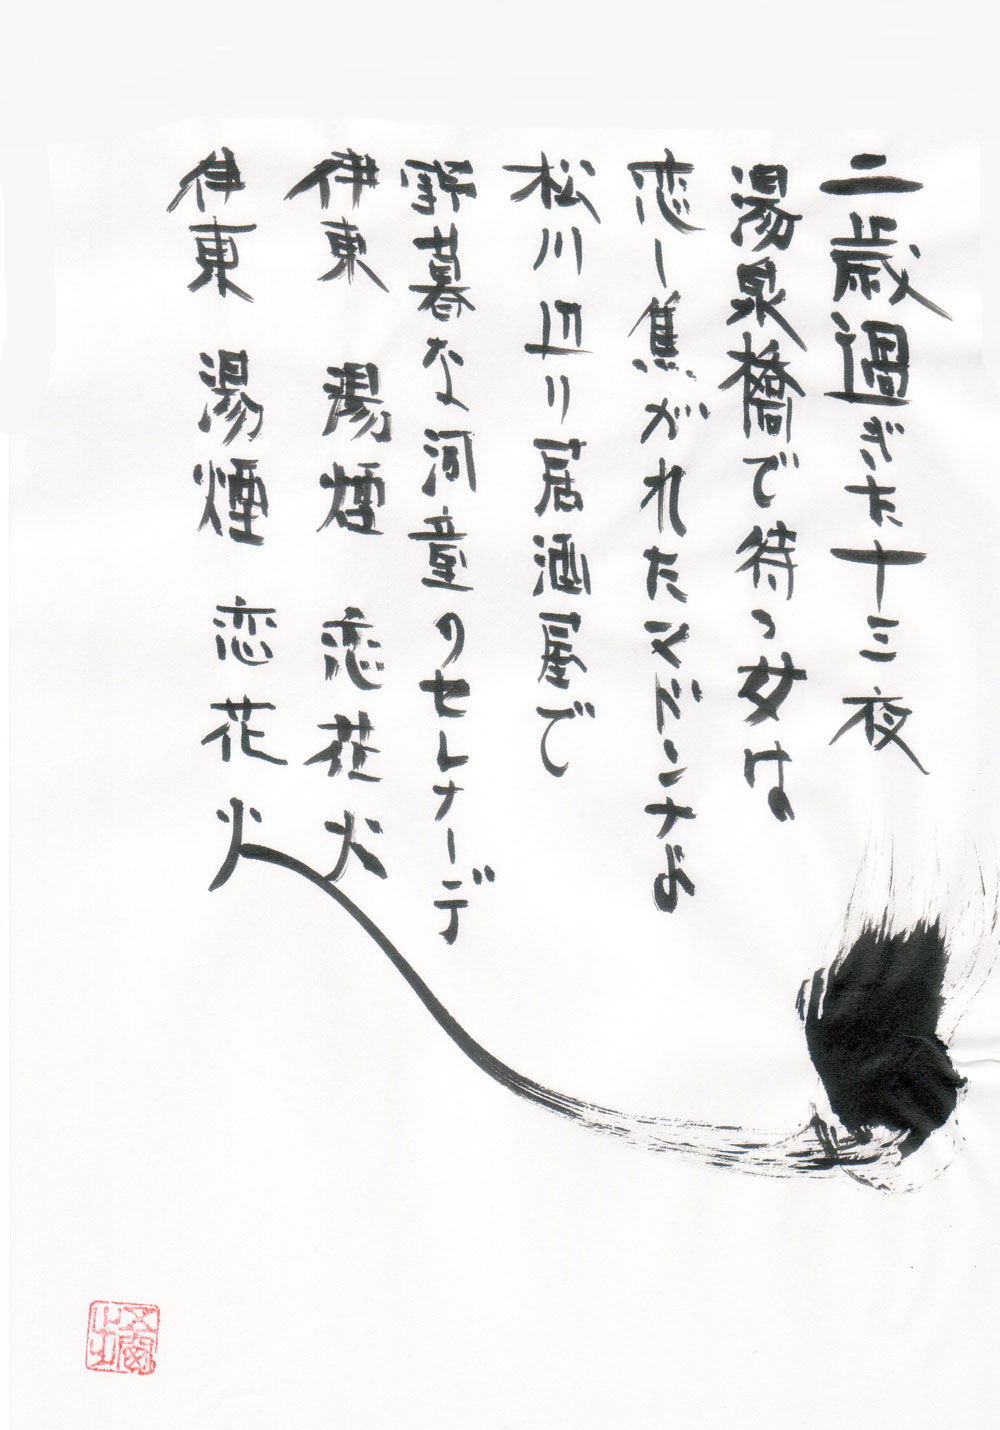 二歳過ぎた十三夜
湯泉橋で待つ女は
恋し焦がれたマドンナよ
松川辺り居酒屋で
野暮な河童のセレナーデ
伊東 湯煙 恋花火
伊東 湯煙 恋花火